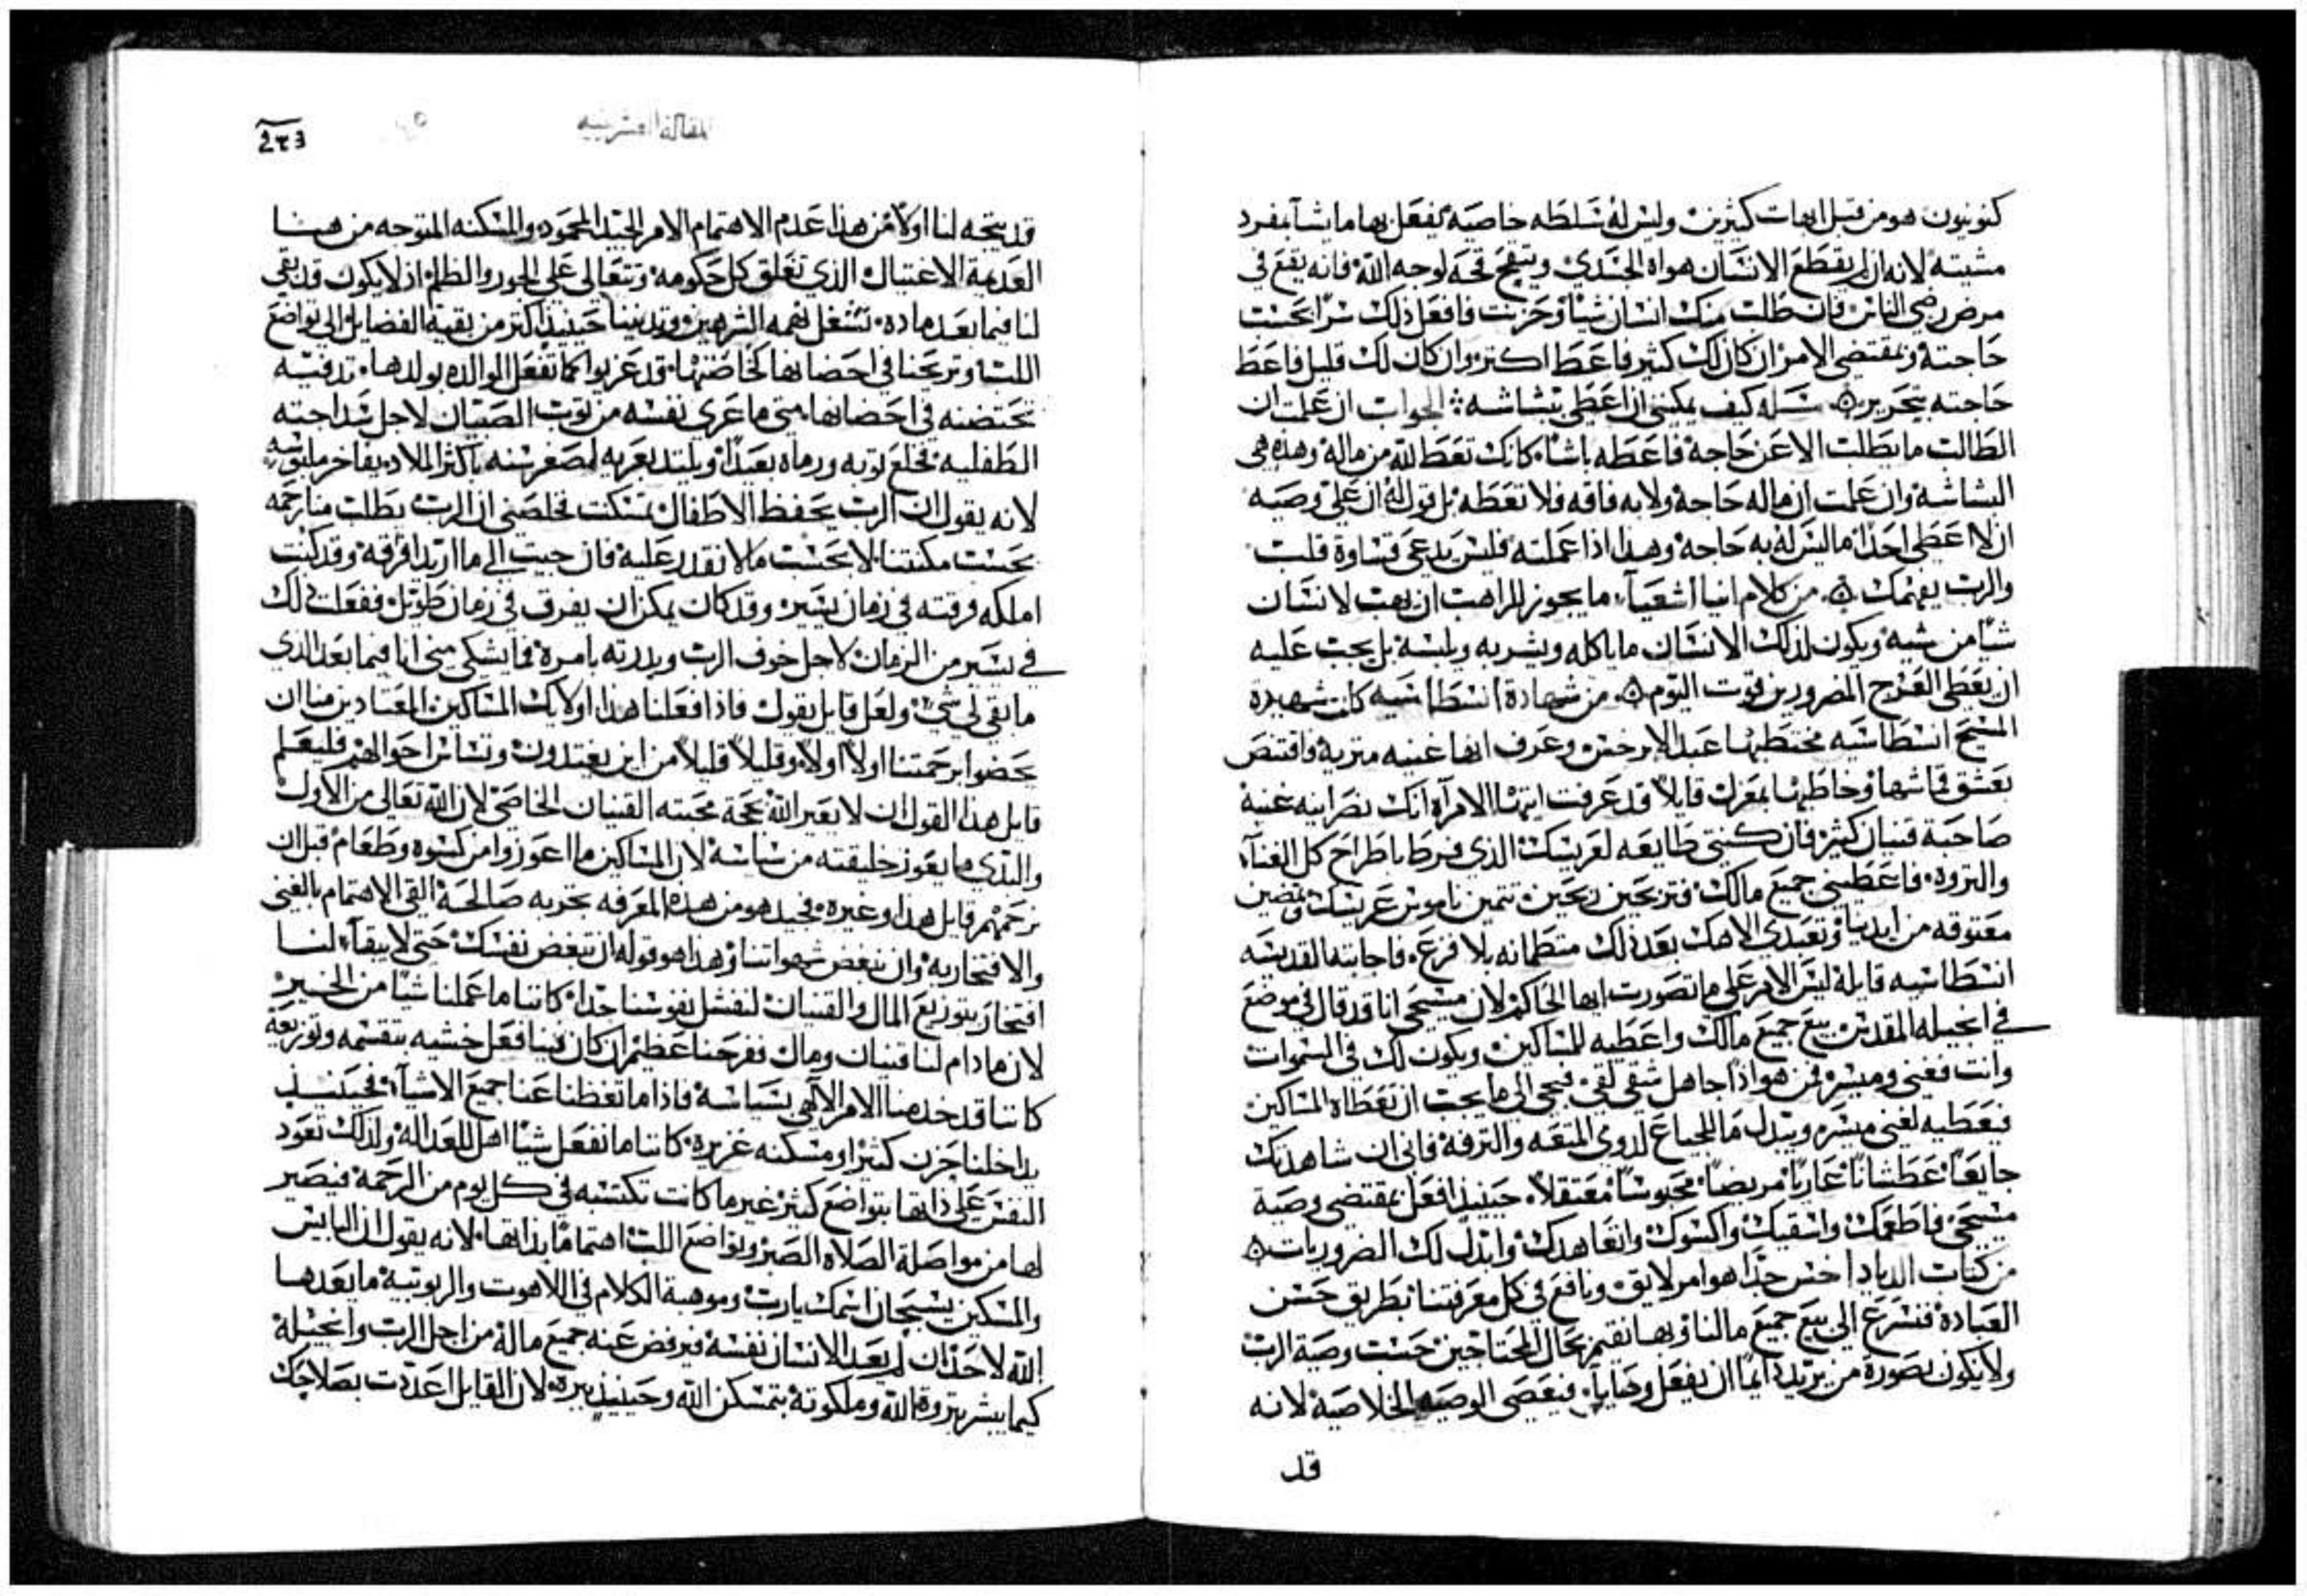 كنونيون هو من قبل ابهات كثيرين وليس له سلطه خاصيه ليفعل بها ما يشا بمفرد
مشيته لانه ان لم يقطع الانسان هواه الجسدي لوجه الله فانه يقع في
مرض رضي الناس فان طلب منك انسان شيا وحزنت فافعل ذلك بحسب
حاجته ومقتضي الامر ان كان لك كثير فاعط اكتر وان كان لك قليل فاعط
حاجته بتحرير سله كيف يمكنني ان اعطي بشاشه الجواب ان علمت ان
الطالب ما يطلب الا عن حاجه فاعطه باشا كانك تعط لله من ماله وهذه هي
البشاشه وان علمت ان ماله حاجه ولا به فاقه فلا تعطه بل قول له ان علي وصيه
ان لا اعطي احدا ما ليس له به حاجه وهذا اذا عملته فليس يدعي قساوة قلب
والرب يفهمك من كلام انبا اشعيا ما يجوز للراهب ان يهب لانسان
شيا من شيه ويكون لذلك الانسان ما ياكله ويشربه ويلبسه بل يجب عليه
ان يعطي المضرورين قوت اليوم من شهادة انسطاسيه كانت شهيدة
المسيح انسطاسيه وعرف انها غنيه متريه واقتنص
بعشق قماشها وخاطبها قايلا قد عرفت ايتها الامراه انك نصرانيه غنيه
صاحبة قنيان كثير فان كنتي طايعه لعريسك الذي باطراح كل الغنا
والتروه فاعطيني جميع مالك فتربحين ربحين تتمين ناموس عريسك وتمضين
معتوقه من ايدينا وتعبدي الاهك بعد ذلك متطمانه بلا فزع فاجابته القديسه
انسطاسيه قايله ليس الامر علي ما تصورت ايها الحاكم لان مسيحي انا قد قال في موضع
في انجيله المقدس بيع جميع مالك واعطيه للمساكين ويكون لك في السموات
وانت فغني وميسر فمن هو اذا جاهل شقي فيجي الي ما يجب ان تعطاه المساكين
فيعطيه لغني ميسر ويبدل ما للجياع لذوي المتعه والترفه فاني ان شاهدتك
جايعا عطشانا عاريا مريضا محبوسا معتقلا حينيذ افعل بمقتضي وصية
مسيحي فاطعمك واسقيك واكسوك واتعاهدك وابدل لك الضروريات
من كتاب جدا هو امر لايق ونافع في كل معرفتنا بطريق حسن
العباده فنسرع الي بيع جميع مالنا وبها نقيم بحال المحتاجين حسب وصية الرب
ولا يكون بصورة من يريد ان يفعل فيعصي الوصيه الخلاصيه لانه
قد
المقالة العشرينيه
قد يتجه لنا اولا من هذا عدم الاهتمام الامر الجيد المحمود والمسكنه المتوجه من هنا
العديمة الاغتيال الذي تغلق كل حكومه وتتعالي علي الجور والظلم اذ لا يكون قد بقي
لنا فيما بعد ماده تشغل نهمه الشرهين وتدنينا حينيذ اكتر من بقية الفضايل الي تواضع
اللب وتريحنا في احضانها قد عزبوا كما تفعل الوالده بولدها تدفيه
تحتضنه في احضانها متي ما عري نفسه من توب الصبيان لاجل سداجته
الطفليه فخلع توبه ورماه بعيدا ويلتد بعريه لصغر سنه باكثر الملاد بفاخر ملبوسه
لانه يقول ان الرب يحفظ الاطفال تمسكنت فخلصني ان الرب يطلب منا رحمه
بحسب مكنتنا لا بحسب ما لا نقدر عليه فان حبيت الي ما اريد افرقه وقد كنت
املكه فرقته في زمان يسير وقد كان يمكن ان يفرق في زمان طويل ففعلت ذلك
في يسير من الزمان لاجل خوف الرب وبدرته بامره فما يشكي مني انا فيما بعد الذي
ما بقي لي شي ولعل قايل يقول فاذا فعلنا هذا اولايك المساكين المعتادين منا ان
يحضوا برحمتنا اولا اولا وقليلا قليلا من اين يغتدون وتساس احوالهم فليعلم
قايل هذا القول ان لا يعير الله بحجة محبته القنيان الخاصي لان الله تعالي من الاول
والذي ما يعوز خليقته من سياسه لان المساكين ما اعوزوا من كسوه وطعام قبل ان
نرحمهم قايل هذا وغيره فجيد هو من هذه المعرفه بتجربه صالحة القي الاهتمام بالغني
والافتخار به وان نبغض شهواتنا وهذا هو قوله ان تبغض نفسك حتي لا يبقا لنا
افتخار بتوزيع المال والقنيان لنفشل نفوسنا جدا كاننا ما عملنا شيا من الخير
لان ما دام لنا قنيان ومال ففرحنا عظيم ان كان فينا فعل خشيه بتقسيمه وتوزيعه
كاننا قد خدمنا الامر الالاهي بسياسه فاذا ما تعطلنا عنا جميع الاشيا فحينيذ
يداخلنا حزن كثير ومسكنه غزيره كاننا ما نفعل شيا اهل للعداله ولذلك تعود
النفس علي ذاتها بتواضع كثير غير ما كانت تكتسبه في كل يوم من الرحمه فيصير
لها من مواصلة الصلاه الصبر وتواضع اللب اهتماما بذاتها لانه يقول ان البايس
والمسكين يسبحان اسمك يارب وموهبة الكلام في اللاهوت والربوبيه ما يعدها
الله لاحد ان لم يعد الانسان نفسه فيرفض عنه جميع ماله من اجل الرب وانجيله
كيما يبشر بتروة الله وملكوته بتمسكن الله وحينيذ يبره لان القايل اعددت بصلاحك